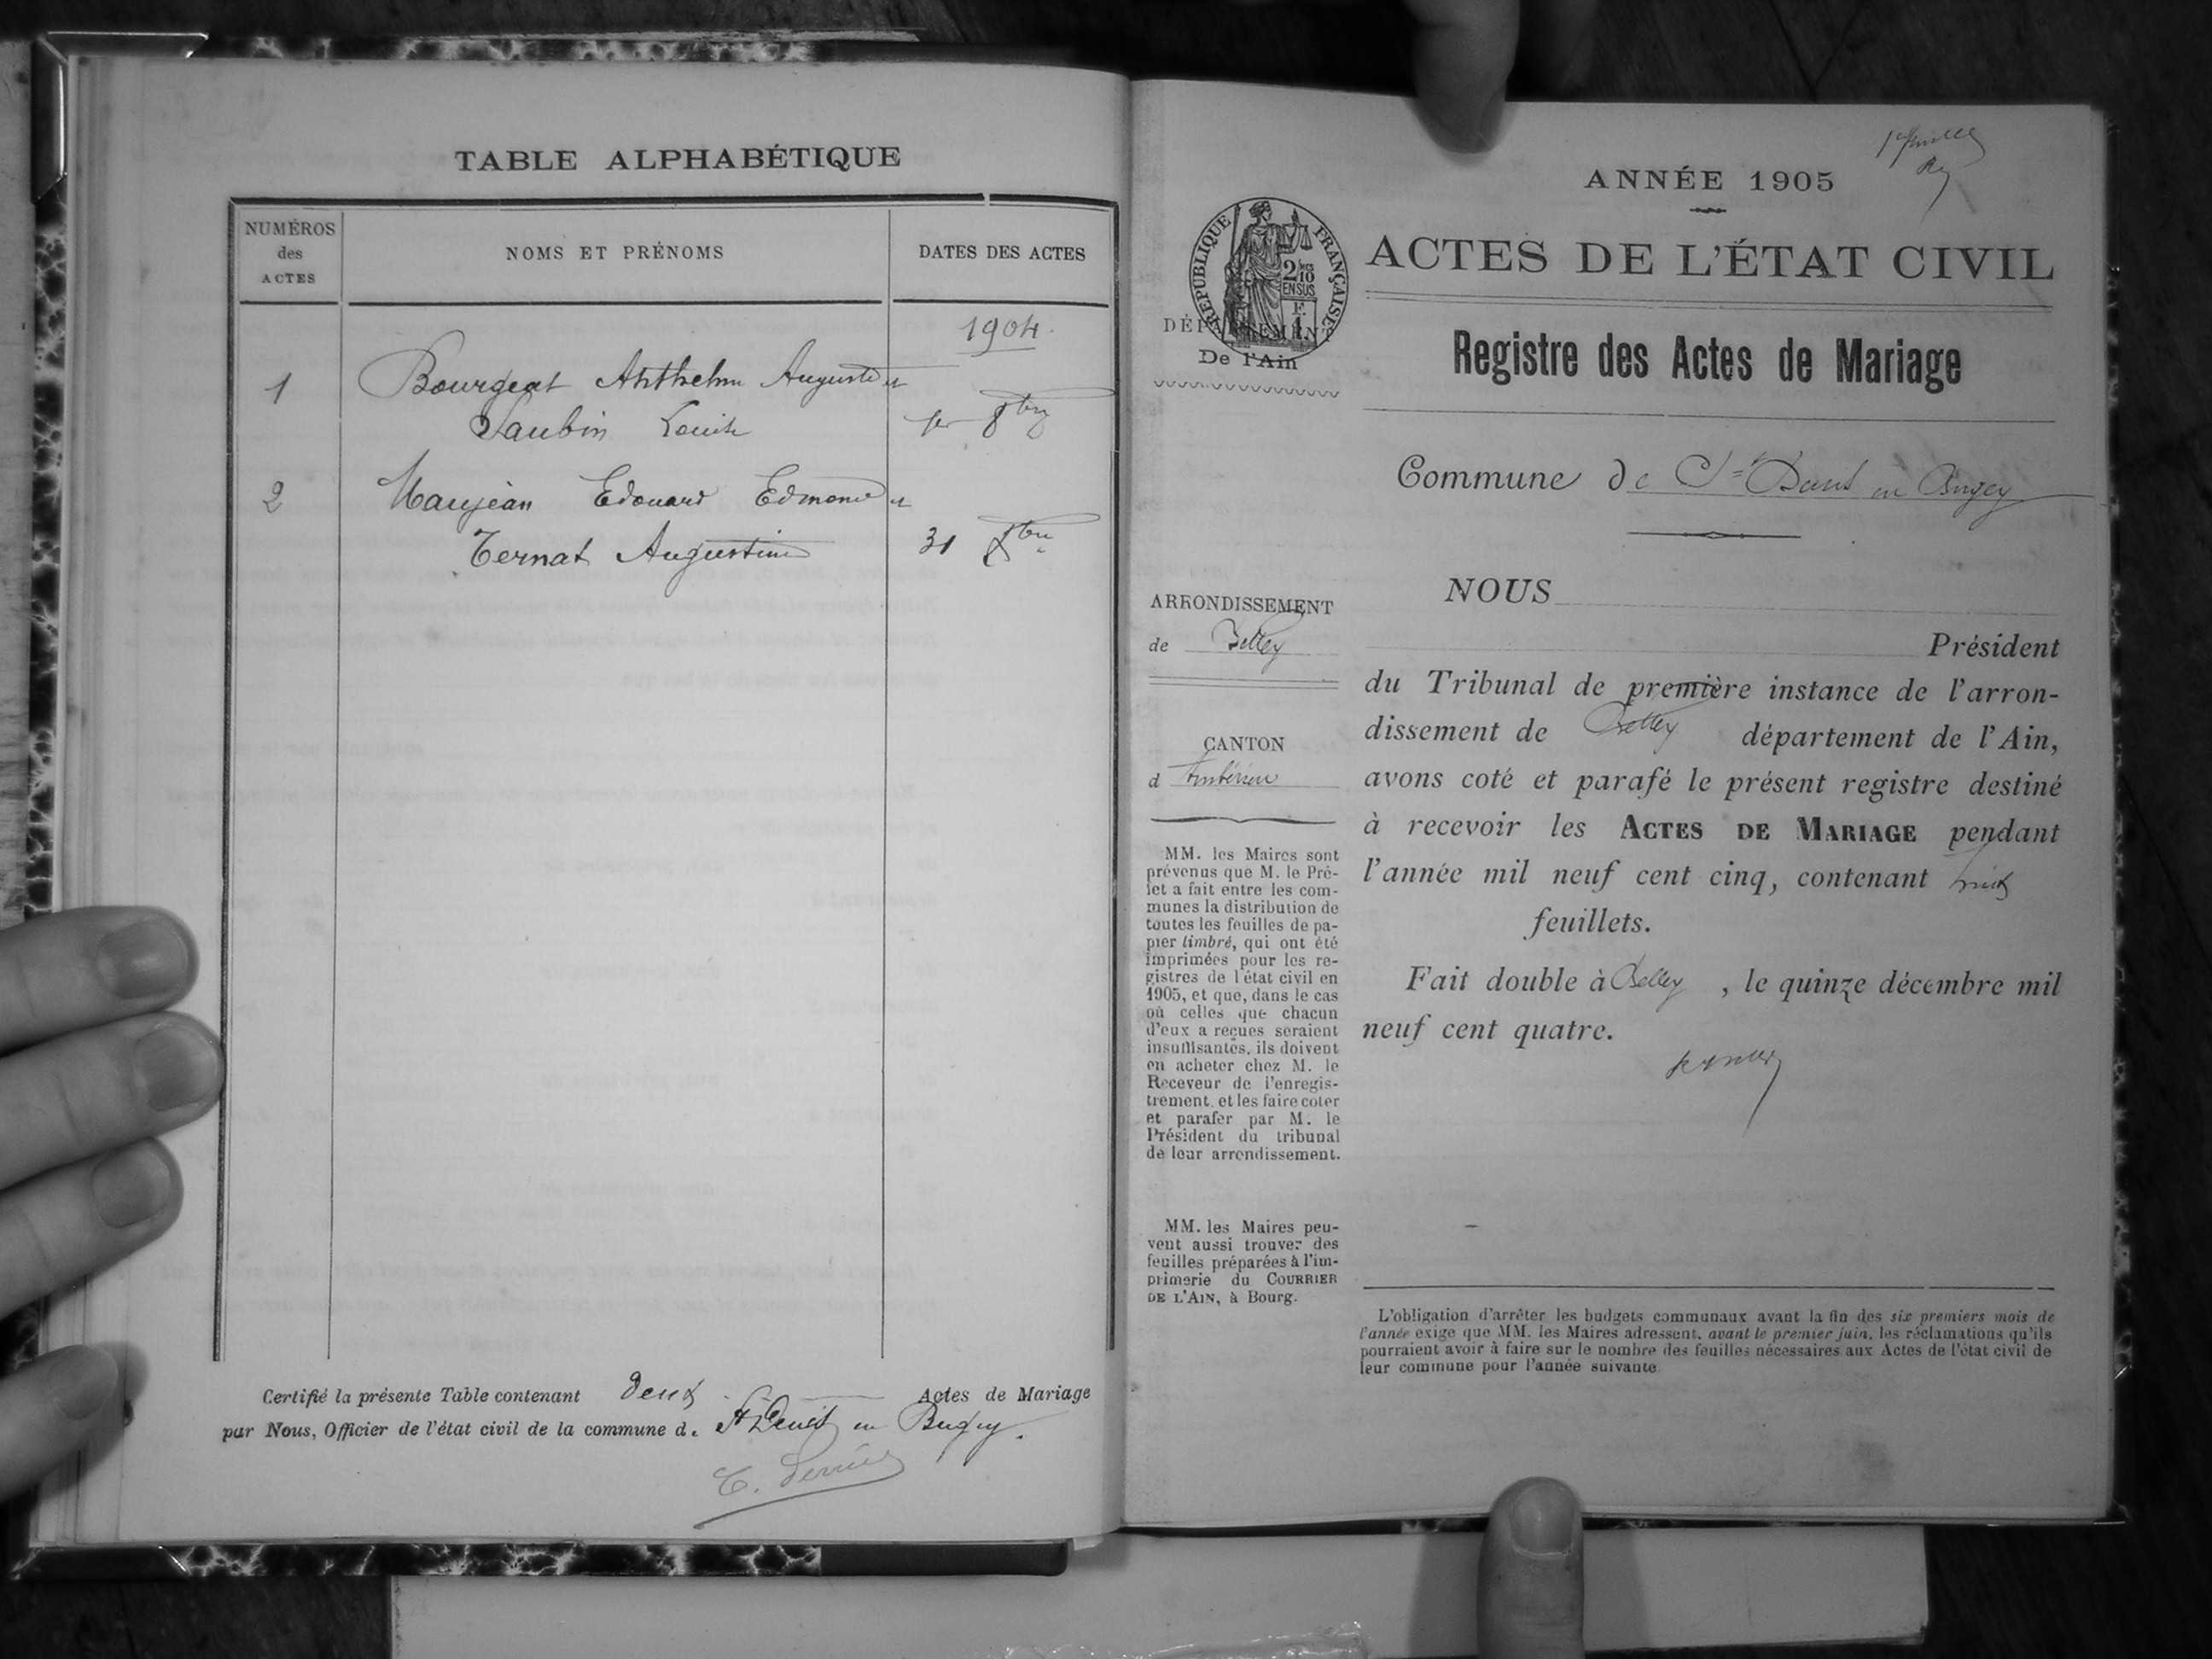 TABLE ALPHABÉTIQUE
NUMÉROS
des
ACTES
NOMS ET PRÉNOMS
DATES DES ACTES
1904.
1 Bourgeat Anthelme Auguste et
Saubin Louise 1er 8bre
2 Maujean Edouard Edmond et
Ternat Augustine 31 Xbre
Certifié la présente Table contenant deux Actes de Mariage
par Nous, Officier de l'état civil de la commune d. St Denis en Bugey.
ANNÉE 1905
RÉPUBLIQUE FRANÇAISE
2/10
EN SUS
F.
1
DÉPARTEMENT
De l'Ain
ACTES DE L'ÉTAT CIVIL
Registre des Actes de Mariage
Commune de St Denis en Bugey
ARRONDISSEMENT
de Belley
CANTON
d Ambérieu
MM. les Maires sont
prévenus que M. le Pré-
fet a fait entre les com-
munes la distribution de
toutes les feuilles de pa-
pier timbré, qui ont été
imprimées pour les re-
gistres de l'état civil en
1905, et que, dans le cas
où celles que chacun
d'eux a reçues seraient
insuffisantes, ils doivent
en acheter chez M. le
Receveur de l'enregis-
trement, et les faire coter
et parafer par M. le
Président du tribunal
de leur arrondissement.
MM. les Maires peu-
vent aussi trouver des
feuilles préparées à l'im-
primerie du COURRIER
DE L'AIN, à Bourg.
NOUS
Président
du Tribunal de première instance de l'arron-
dissement de Belley département de l'Ain,
avons coté et parafé le présent registre destiné
à recevoir les ACTES DE MARIAGE pendant
l'année mil neuf cent cinq, contenant
feuillets.
Fait double à Belley, le quinze décembre mil
neuf cent quatre.
L'obligation d'arrêter les budgets communaux avant la fin des six premiers mois de
l'année exige que MM. les Maires adressent, avant le premier juin, les réclamations qu'ils
pourraient avoir à faire sur le nombre des feuilles nécessaires aux Actes de l'état civil de
leur commune pour l'année suivante